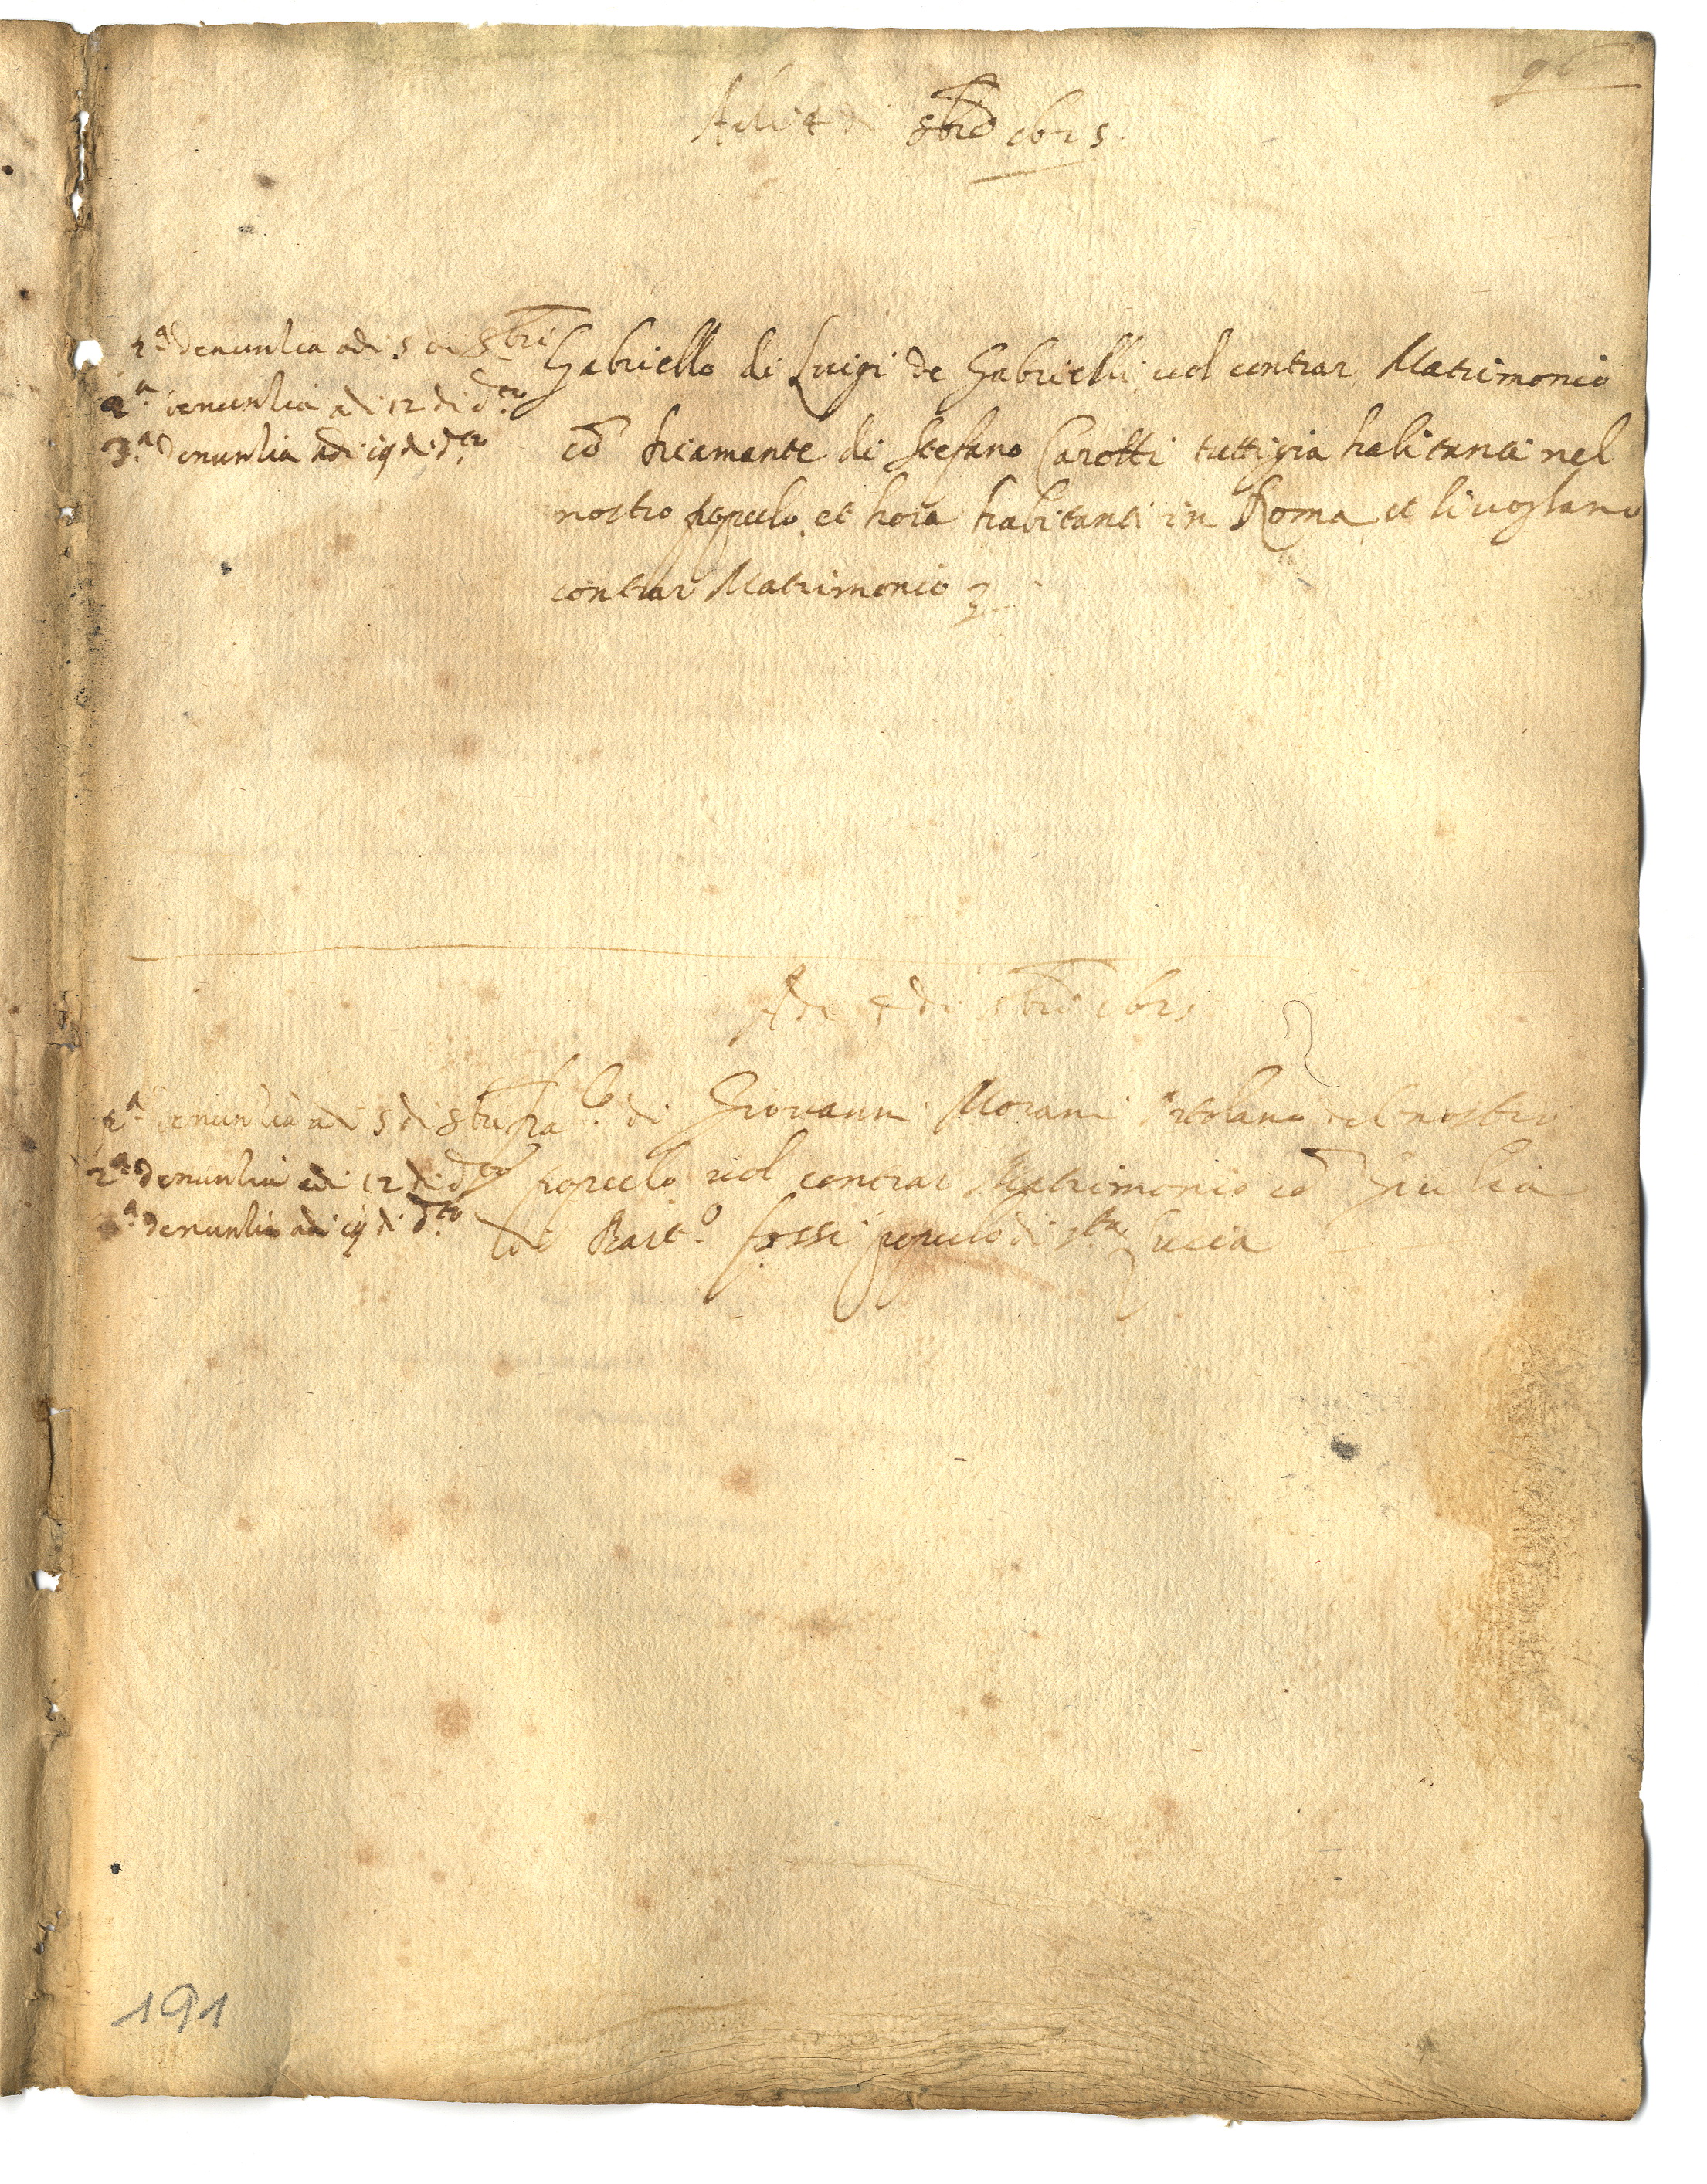 96
Adi 4 di 8bre 1625
1ª denuntia adi 5 di 8bre
2ª denuntia adi 12 di dto
3ª denuntia adi 19 di dto
Gabriello di Luigi de Gabrielli vol contrar Matrimonio
cō di Stefano Carotti tutti gia habitanti nel
nostro populo et hora habitanti in Roma et li vogliano
contrar Matrimonio
Adi 4 di 8bre 1625
1ª denuntia adi 5 di 8bre
2ª denuntia adi 12 di dto
3ª denuntia adi 19 di dto
di Giovanni Morani ortolano del nostro
populo vol contrar Matrimonio cō Giulia
di Bart.º fossi populo di sta Lucia
191